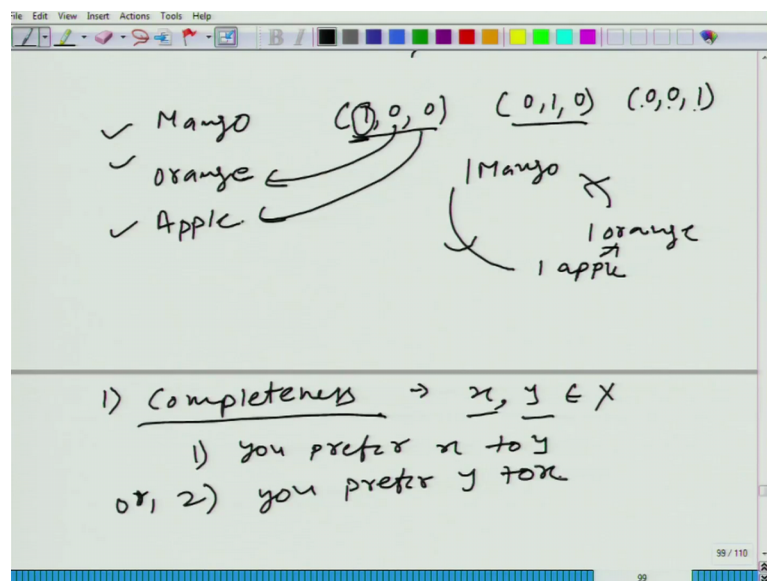 File Edit View Insert Actions Tools Help
B I
Mango (1, 0, 0) (0, 1, 0) (0, 0, 1)
orange
Apple
1 Mango
1 orange
1 apple
1) Completeness → x, y ∈ X
1) you prefer x to y
or, 2) you prefer y to x
99 / 110
99